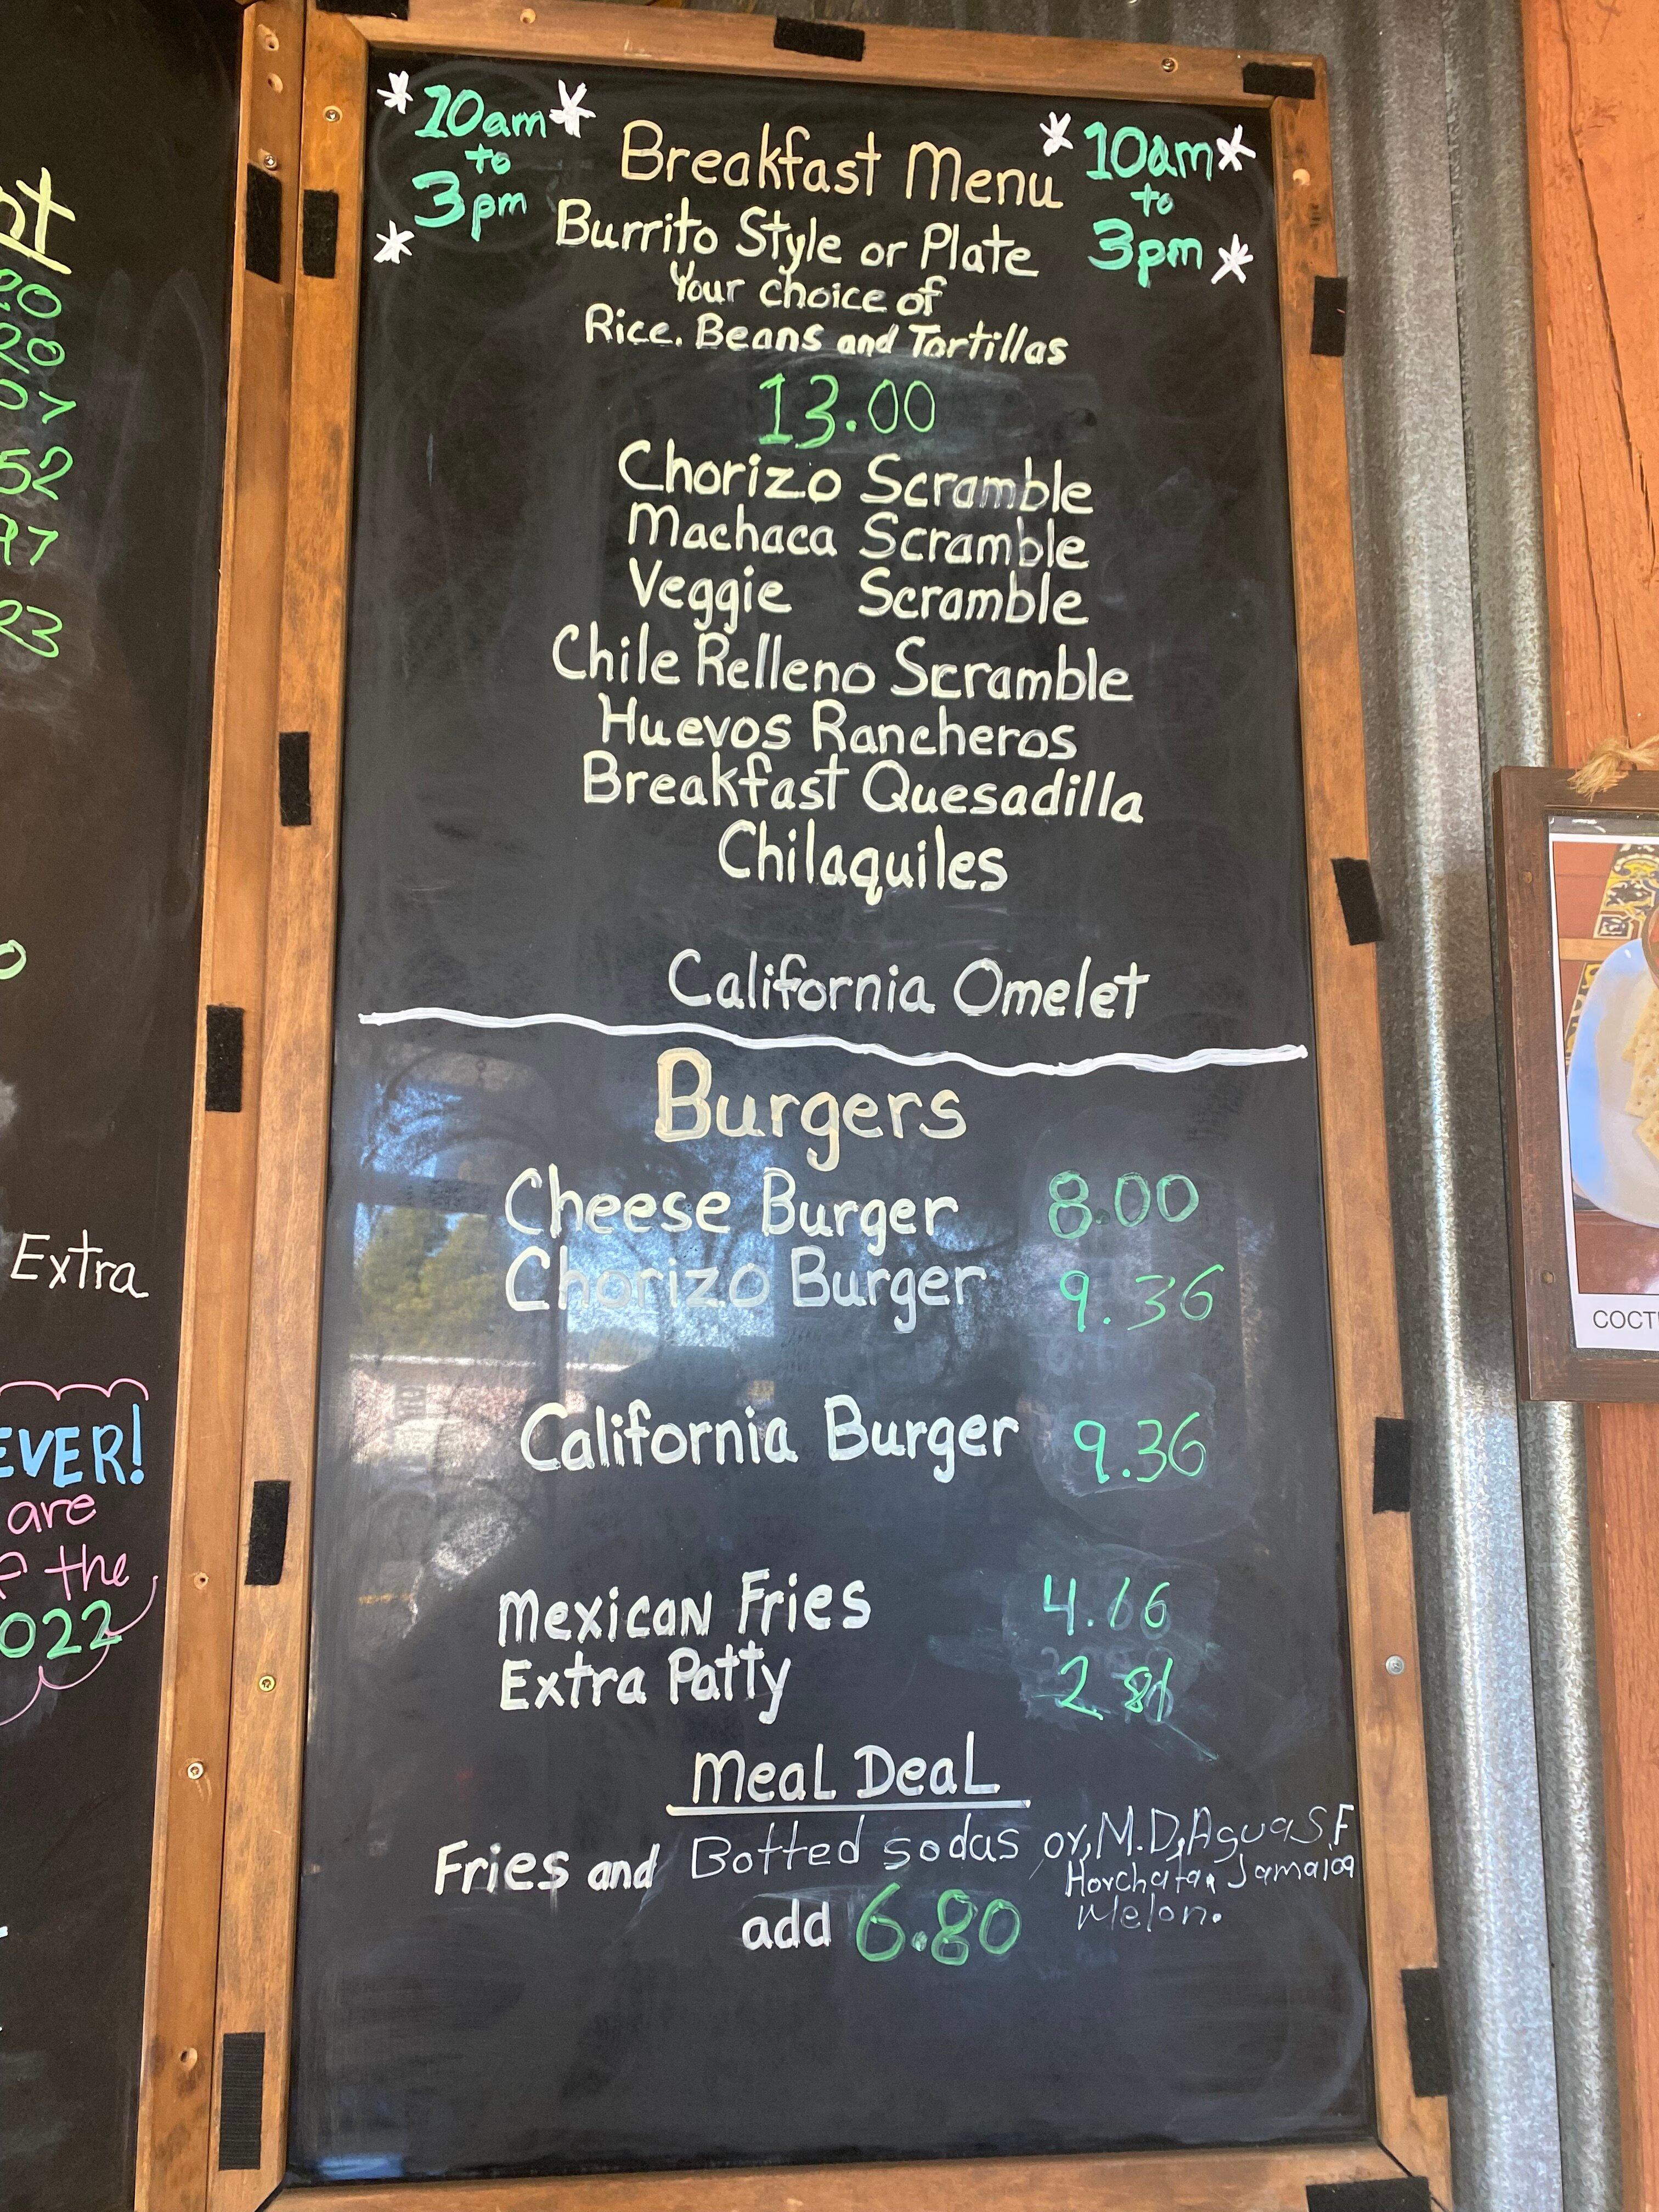 10am
to
3pm
Breakfast Menu
10am
to
3pm
Burrito Style or Plate
Your choice of
Rice. Beans and Tortillas
13.00
Chorizo Scramble
Machaca Scramble
Veggie Scramble
Chile Relleno Scramble
Huevos Rancheros
Breakfast Quesadilla
Chilaquiles
California Omelet
Burgers
Cheese Burger 8.00
Chorizo Burger 9.36
California Burger 9.36
Mexican Fries 4.16
Extra Patty 2.81
Meal Deal
Fries and Botted sodas or, M.D, Agua S.F
Horchata, Jamaica
Melon.
add 6.80
52
23
Extra
EVER!
are
the
022
COCT